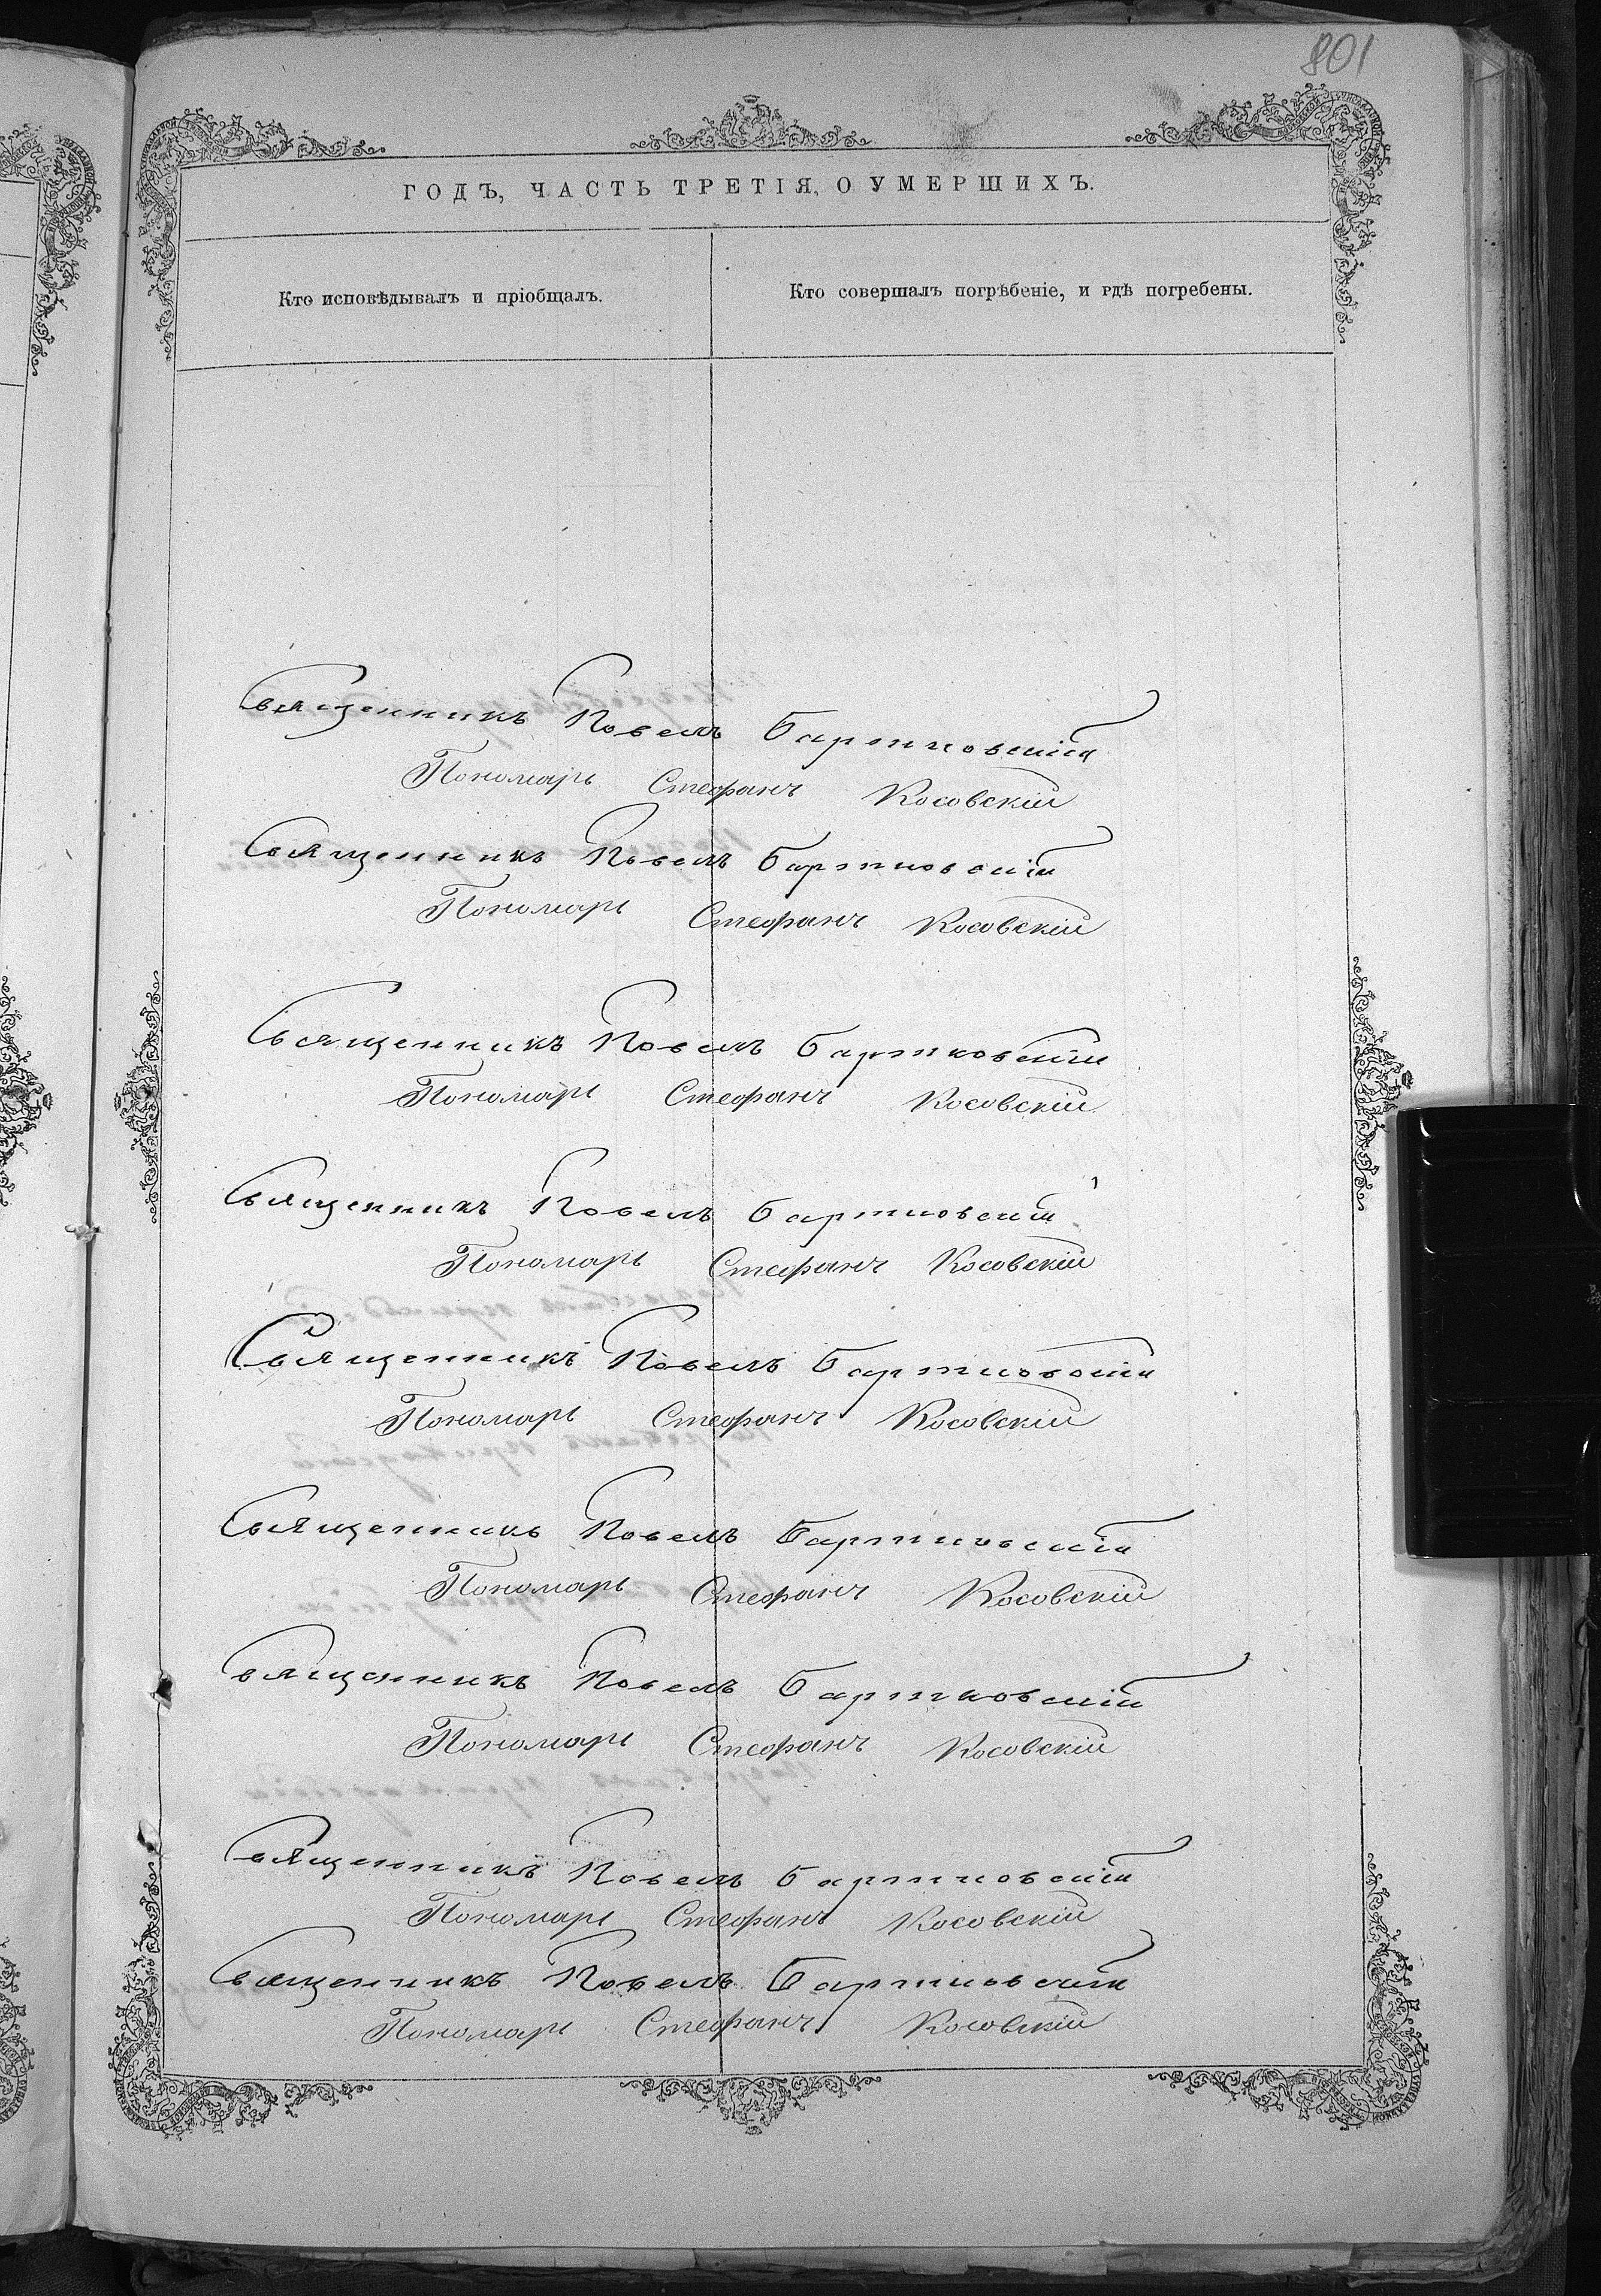 801
ГОДЪ, ЧАСТЬ ТРЕТІЯ, О УМЕРШИХЪ.
Кто исповѣдывалъ и пріобщалъ.
Кто совершалъ погрѣбеніе, и гдѣ погребены.
Священникъ Павелъ Бартковскій
Пономарь Стефанъ Косовскій
Священникъ Павелъ Бартковскій
Пономарь Стефанъ Косовскій
Священникъ Павелъ Бартковскій
Пономарь Стефанъ Косовскій
Священникъ Павелъ Бартковскій
Пономарь Стефанъ Косовскій
Священникъ Павелъ Бартковскій
Пономарь Стефанъ Косовскій
Священникъ Павелъ Бартковскій
Пономарь Стефанъ Косовскій
Священникъ Павелъ Бартковскій
Пономарь Стефанъ Косовскій
Священникъ Павелъ Бартковскій
Пономарь Стефанъ Косовскій
Священникъ Павелъ Бартковскій
Пономарь Стефанъ Косовскій